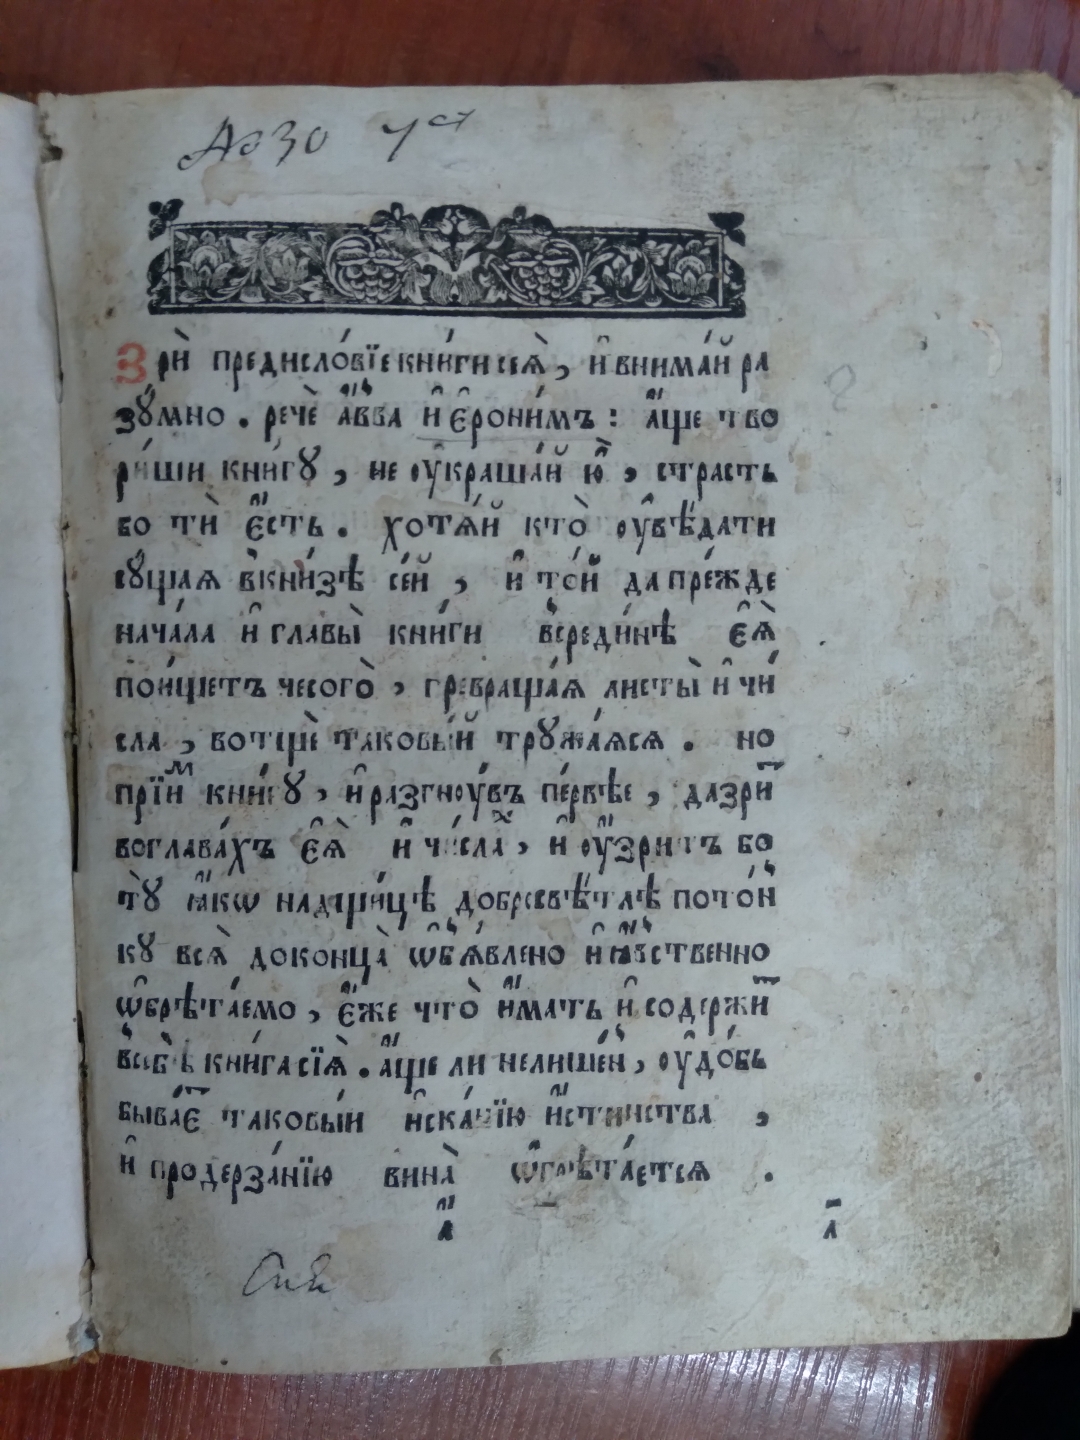 Зрѝ предисло́вїе кни́ги сея̀, и҆ внима́й ра
зꙋ́мно. речѐ а҆́вва и҆ є҆рони́мъ: а҆́ще тво
ри́ши кни́гꙋ, не оу҆краша́й ю҆̀, страсть
бо тѝ є҆́сть. хотѧ́й кто̀ оу҆вѣ́дати
сꙋ́щаѧ в̾кни́зѣ се́й, и҆ то́й да пре́жде
нача́ла и҆ главы̀ кни́ги в̾среди́нѣ є҆ѧ̀
пои́щетъ чесого̀, превраща́ѧ листы̀ и҆ чи́
сла, вотщѐ таковы́й трꙋжа́ѧсѧ. но
прїи́м кни́гꙋ, и҆ разгноу́въ пе́рвѣе, да зри́т
воглава́хъ є҆ѧ̀ и҆ чи́слах, и҆ оу҆́зритъ бо
тꙋ̀ ꙗ҆́кѡ надщи́цѣ добросвѣ́тлѣ пото́н
кꙋ всѧ̀ доконца̀ ѡ҆б̾ѧ́влено и҆ ꙗ҆́вственно
ѡ҆брѣта́емо, є҆́же что̀ и҆́мать и҆ содержи́т
в̾себѣ̀ кни́га сїѧ̀. а҆́ще ли нелише́н̾, оу҆до́бь
быва́ет таковы́й и҆ска́нїю и҆́стинства,
и҆ продерза́нїю вина̀ ѡ҆брѣта́етсѧ.
а҆́ а҃